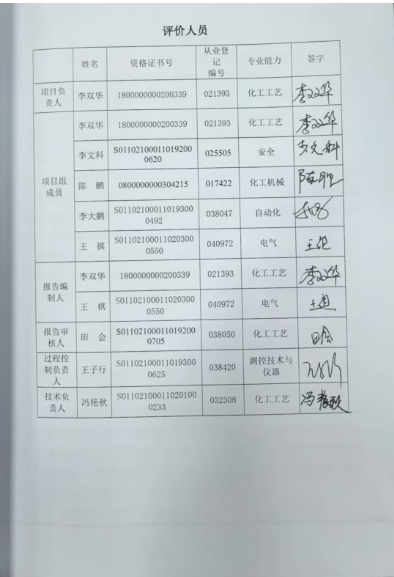 评价人员
姓名 资格证书号 从业登记编号 专业能力 签字
项目负责人 李双华 1800000000200339 021393 化工工艺 李双华
项目组成员 李双华 1800000000200339 021393 化工工艺 李双华
李文科 S011021000110192000620 025505 安全 李文科
陈 鹏 0800000000304215 017422 化工机械 陈鹏
李大鹏 S011021000110193000492 038047 自动化
王 棋 S011021000110203000550 040972 电气
报告编制人 李双华 1800000000200339 021393 化工工艺 李双华
王 棋 S011021000110203000550 040972 电气
报告审核人 田 会 S011021000110192000705 038050 化工工艺 田会
过程控制负责人 王子行 S011021000110193000625 038420 测控技术与仪器
技术负责人 冯艳秋 S011021000110201000233 032308 化工工艺 冯艳秋